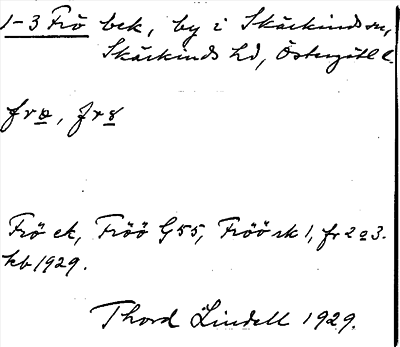 1-3 Frö bek, by i Skärkinds sn,
Skärkinds hd, Östergötl l.
frø, frɤ
Frö ek, Fröö G55, Fröö rk 1, fr 2 o 3.
kb 1929.
Thord Lindell 1929.